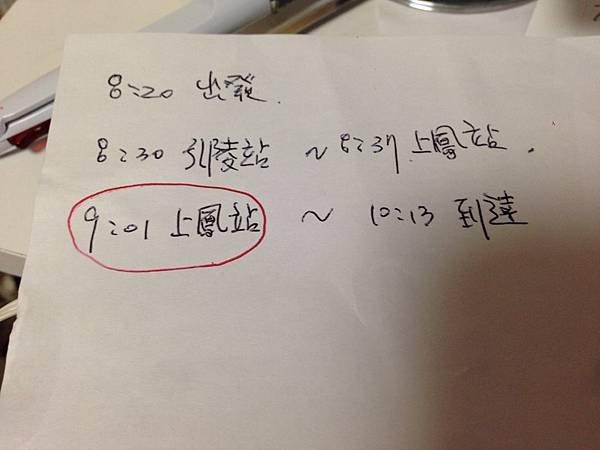 8:20 出發.
8:30 引陵站 ~ 8:37 上鳳站.
9:01 上鳳站 ~ 10:13 到達